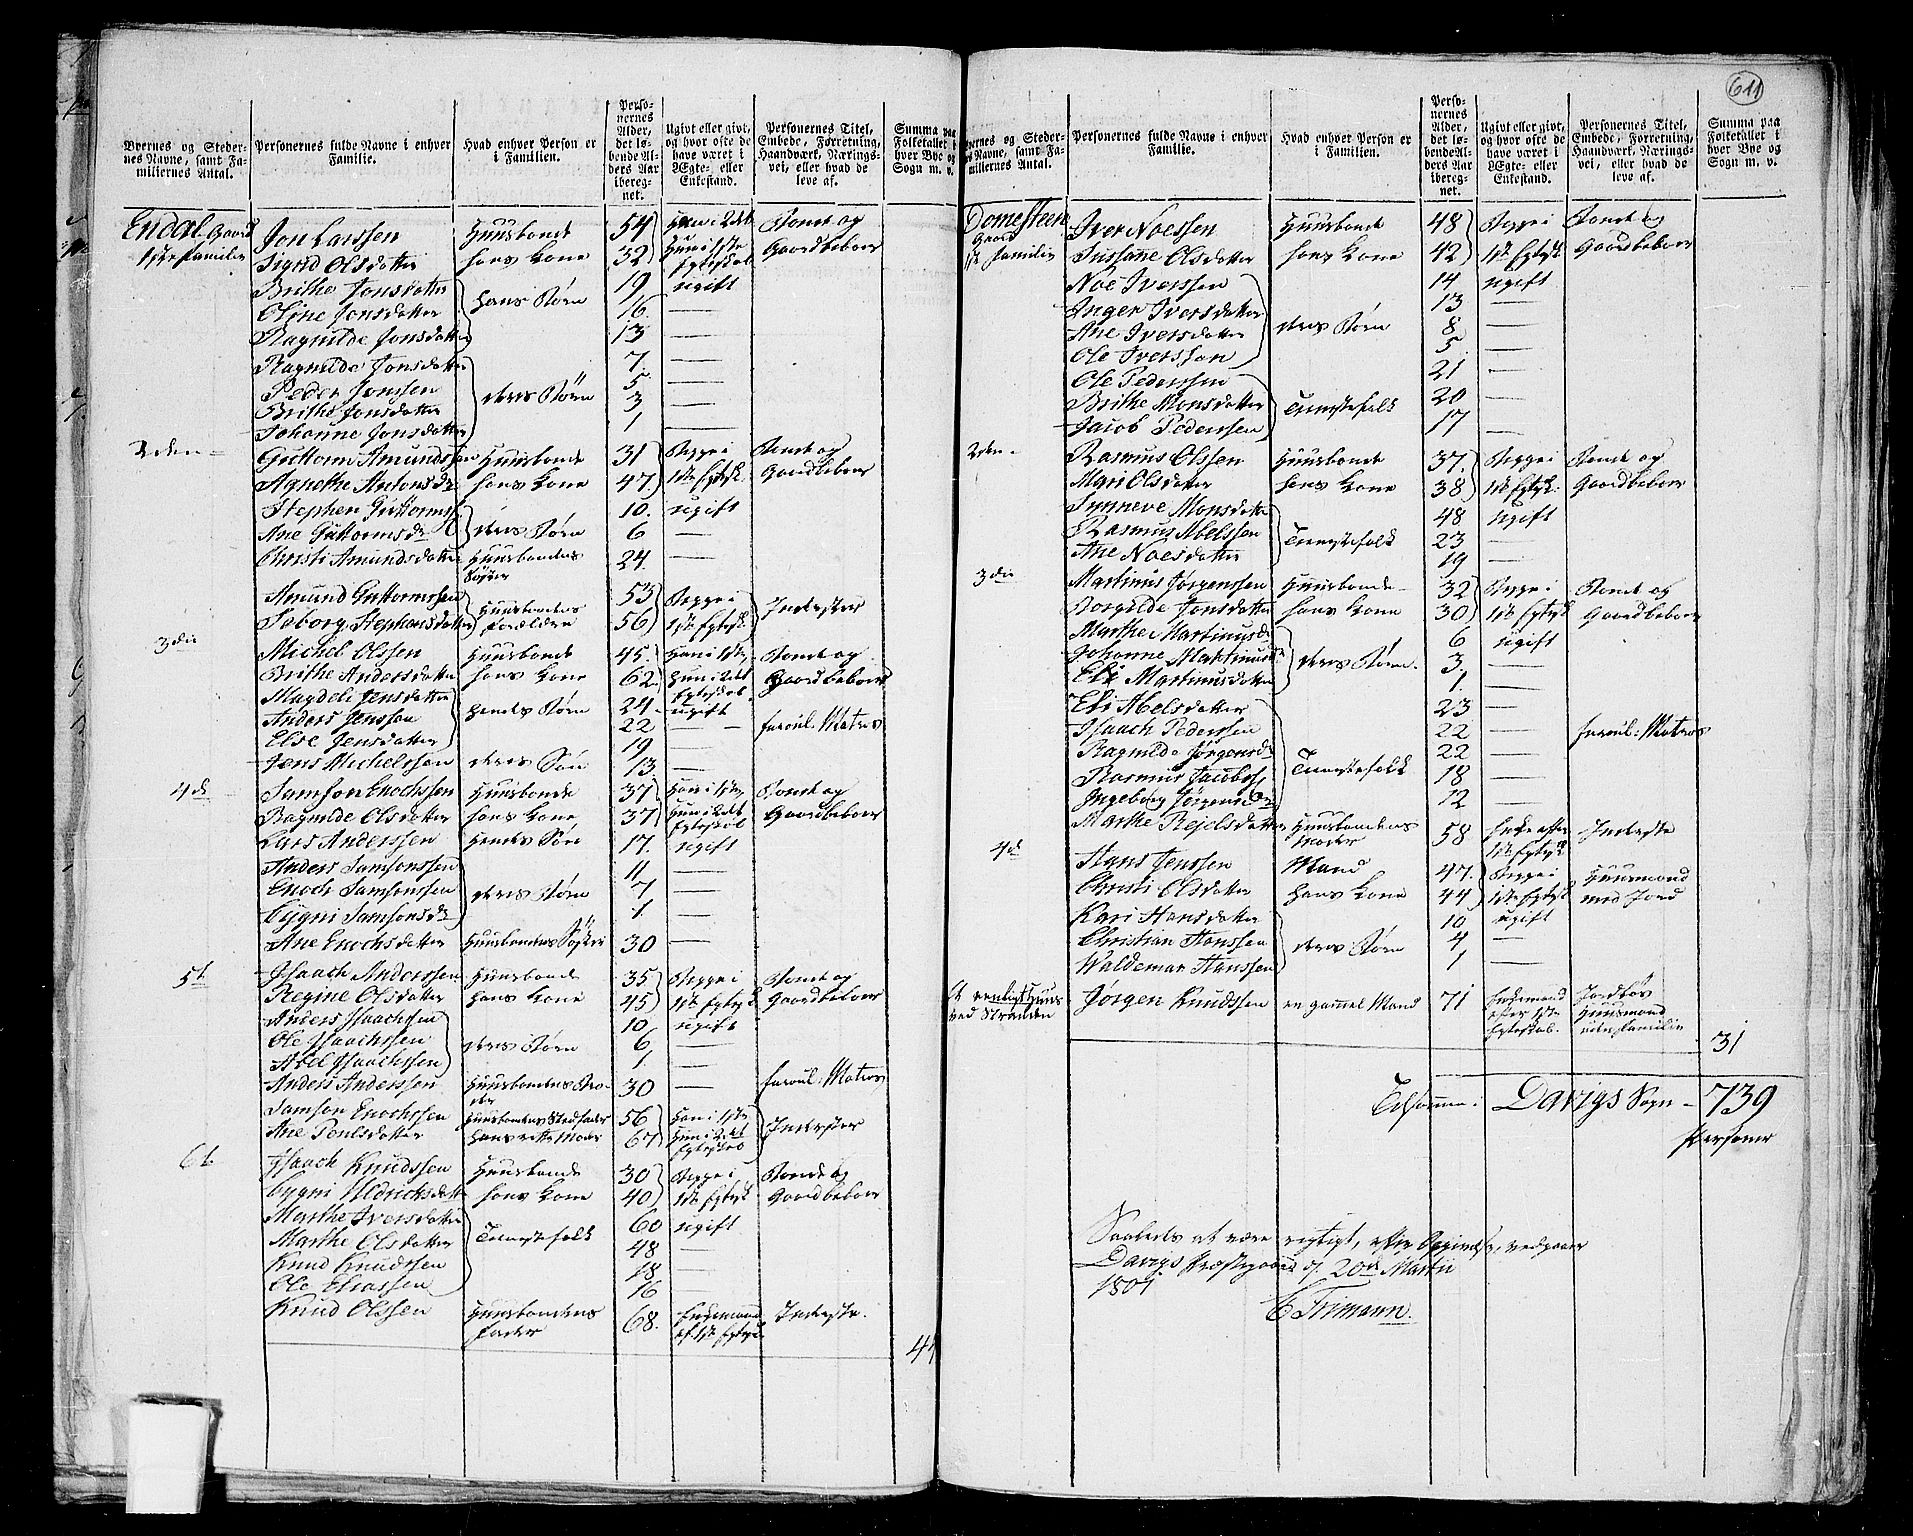 611
Byernes og Stedernes Navne, samt Familiernes Antal.
Personernes fulde Navne i enhver Familie.
Hvad enhver Person er i Familien.
Personernes Alder, det løbende Alders Aar iberegnet.
Ugivt eller givt, og hvor ofte de have været i Ægte- eller Enkestand.
Personernes Titel, Embede, Forretning, Haandværk, Næringsvei, eller hvad de leve af.
Summa paa Folketallet i hver Bye og Sogn m. v.
Endal Gaard Jon Larssen Huusbonde 54 Han i 2det Bonde og
1ste Familie Sigrid Olsdatter hans Kone 32 Hun i 1ste Egteskab Gaardbeboer
Brithe Jonsdatter 19 ugift
Oline Jonsdatter hans Børn 16 —
Ragnilde Jonsdatter 13 —
Ragnilde Jonsdatter 7 —
Peder Jonssen deres Børn 5 —
Brithe Jonsdatter 3 —
Johanne Jonsdatter 1 —
2den Guttorm Amundssen Huusbonde 31 Begge i Bonde og
Agnethe Antonsdr hans Kone 47 1ste Egtesk. Gaardbeboer
Stephen Guttormss. 10 ugift
Ane Guttormsdr deres Børn 6 —
Christi Amundsdatter Huusbondens Søster 24 —
Amund Guttormssen Huusbondens 53 Begge i Inderster
Soborg Stephensdatter Forældre 56 1ste Egtesk.
3die Michel Olssen Huusbonde 45 Han i 1ste Bonde og
Brithe Andersdatter hans Kone 62 Hun i 2det Egteskab Gaardbeboer
Magdeli Jensdatter 24 ugift
Anders Jenssen hendes Børn 22 — Inroul: Matros
Else Jensdatter 19 —
Jens Michelssen deres Søn 13 —
4de Samson Enochssen Huusbonde 37 Han i 1ste Bonde og
Ragnilde Olsdatter hans Kone 37 Hun i 2det Egteskab Gaardbeboer
Lars Anderssen hendes Søn 17 ugift
Anders Samsonssen 11 —
Enoch Samsonssen deres Børn 7 —
Cygni Samsonsdr 1 —
Ane Enochsdatter Huusbondens Søster 30 —
5te Isaach Anderssen Huusbonde 35 Begge i Bonde og
Regine Olsdatter hans Kone 45 1ste Egtesk. Gaardbeboer
Anders Isaachssen 10 ugift
Ole Isaachssen deres Børn 6 —
Abel Isaachssen 1 —
Anders Anderssen Huusbondens Broder 30 — Inroul: Matros
Samson Enochssen Huusbondens Stedfader 56 Han i 1ste
Ane Poulsdatter hans rette Moder 67 Hun i 2det Egteskab Inderster
6te Isaach Knudssen Huusbonde 30 Begge i Bonde og
Cygni Uldricksdatter hans Kone 40 1ste Egtesk. Gaardbeboer
Marthe Iversdatter 60 ugift
Marthe Olsdatter Tienestefolk 48 —
Knud Knudssen 18 —
Ole Eliassen 16 —
Knud Olssen Huusbondens Fader 68 Enkemand af 1ste Egtesk. Inderste
44
Byernes og Stedernes Navne, samt Familiernes Antal.
Personernes fulde Navne i enhver Familie.
Hvad enhver Person er i Familien.
Personernes Alder, det løbende Alders Aar iberegnet.
Ugivt eller givt, og hvor ofte de have været i Ægte- eller Enkestand.
Personernes Titel, Embede, Forretning, Haandværk, Næringsvei, eller hvad de leve af.
Summa paa Folketallet i hver Bye og Sogn m. v.
Domesteen Iver Noessen Huusbonde 48 Begge i Bonde og
Gaard 1ste Familie Sussane Olsdatter hans Kone 42 1ste Egtesk. Gaardbeboer
Noe Iverssen 14 ugift
Inger Iversdatter 13 —
Ane Iversdatter deres Børn 8 —
Ole Iverssen 5 —
Ole Pederssen 21 —
Brithe Monsdatter Tienestefolk 20 —
Jacob Pederssen 17 —
2den Rasmus Olssen Huusbonde 37 Begge i Bonde og
Mari Olsdatter hans Kone 38 1ste Egtesk. Gaardbeboer
Synneve Monsdatter 48 ugift
Rasmus Abelssen Tienestefolk 23 —
Ane Noesdatter 19 —
3die Martinus Jørgenssen Huusbonde 32 Begge i Bonde og
Borgilde Jonsdatter hans Kone 30 1ste Egtesk. Gaardbeboer
Marthe Martinusdr 6 ugift
Johanne Martinusdr deres Børn 3 —
Eli Martinusdatter 1 —
Eli Abelsdatter 23 —
Isaach Pederssen 22 — Inroul: Matros
Ragnilde Jørgensdr Tienestefolk 22 —
Rasmus Jacobss. 18 —
Ingeborg Jørgensdr 12 —
Marthe Rejelsdatter Huusbondens Moder 58 Enke efter 1ste Egtesk. Inderste
4de Hans Jenssen Mand 47 Begge i Huusmand
Christi Olsdatter hans Kone 44 1ste Egtesk. med Jord
Kari Hansdatter 10 ugift
Christian Hanssen deres Børn 4 —
Waldemar Hanssen 1 —
et ringt Huus ved Stranden Jørgen Knudssen en gammel Mand 71 Enkemand efter 1ste Egteskab. Jordløs Huusmand uden Familie
31
Tilsammen i Davigs Sogn - 739
Personer
Saaledes at være rigtigt, efter Opgivelse, vedgaaer
Davigs Præstegaard d. 20de Martii
1801
C Trimann.